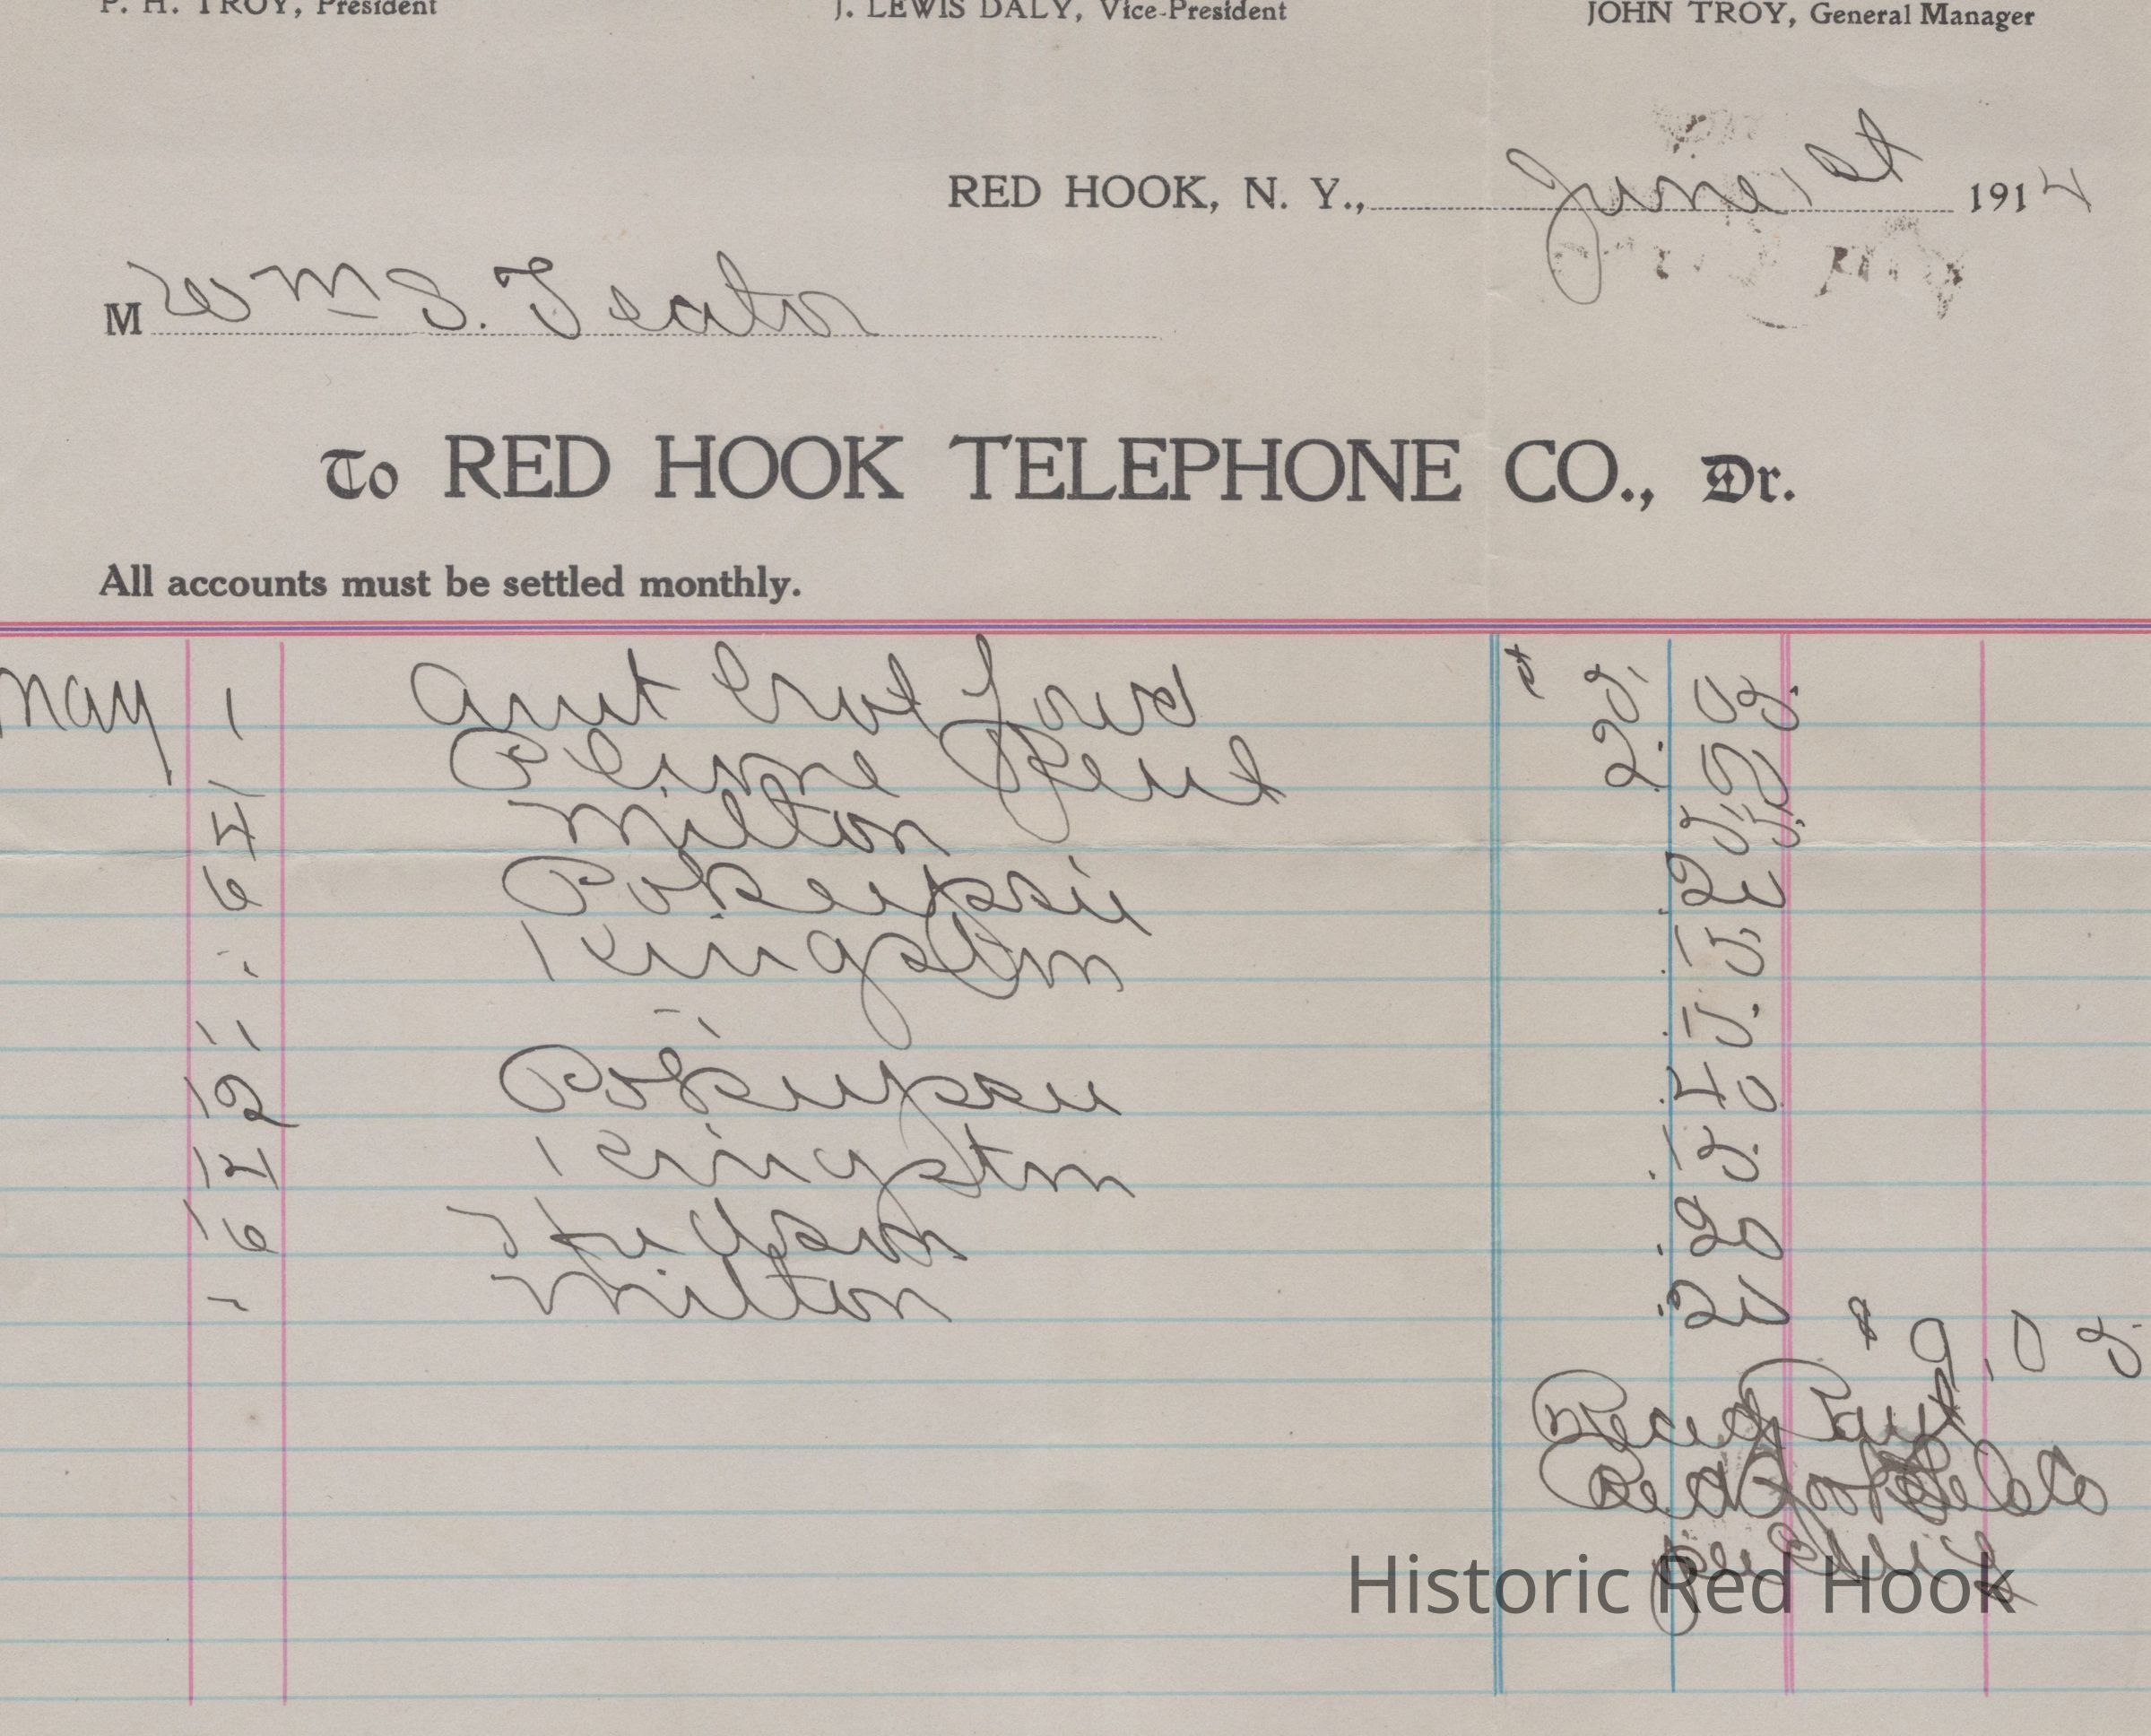 P. H. TROY, President J. LEWIS DALY, Vice-President JOHN TROY, General Manager
RED HOOK, N. Y., June 1st 1914
M Wm S. Teator
To RED HOOK TELEPHONE CO., Dr.
All accounts must be settled monthly.
May 1 Amt Brot Ford $ 5,05
1 Phone Rent 2.00
4 Milton
6 Pokeepsie .20
" Kingston .15
11 " .15
12 Pokeepsie .40
14 Kingston .15
16 Hudson .20
" Milton .20
$ 9.05
Recd Payt
Red Hook Tel Co
Historic Red Hook